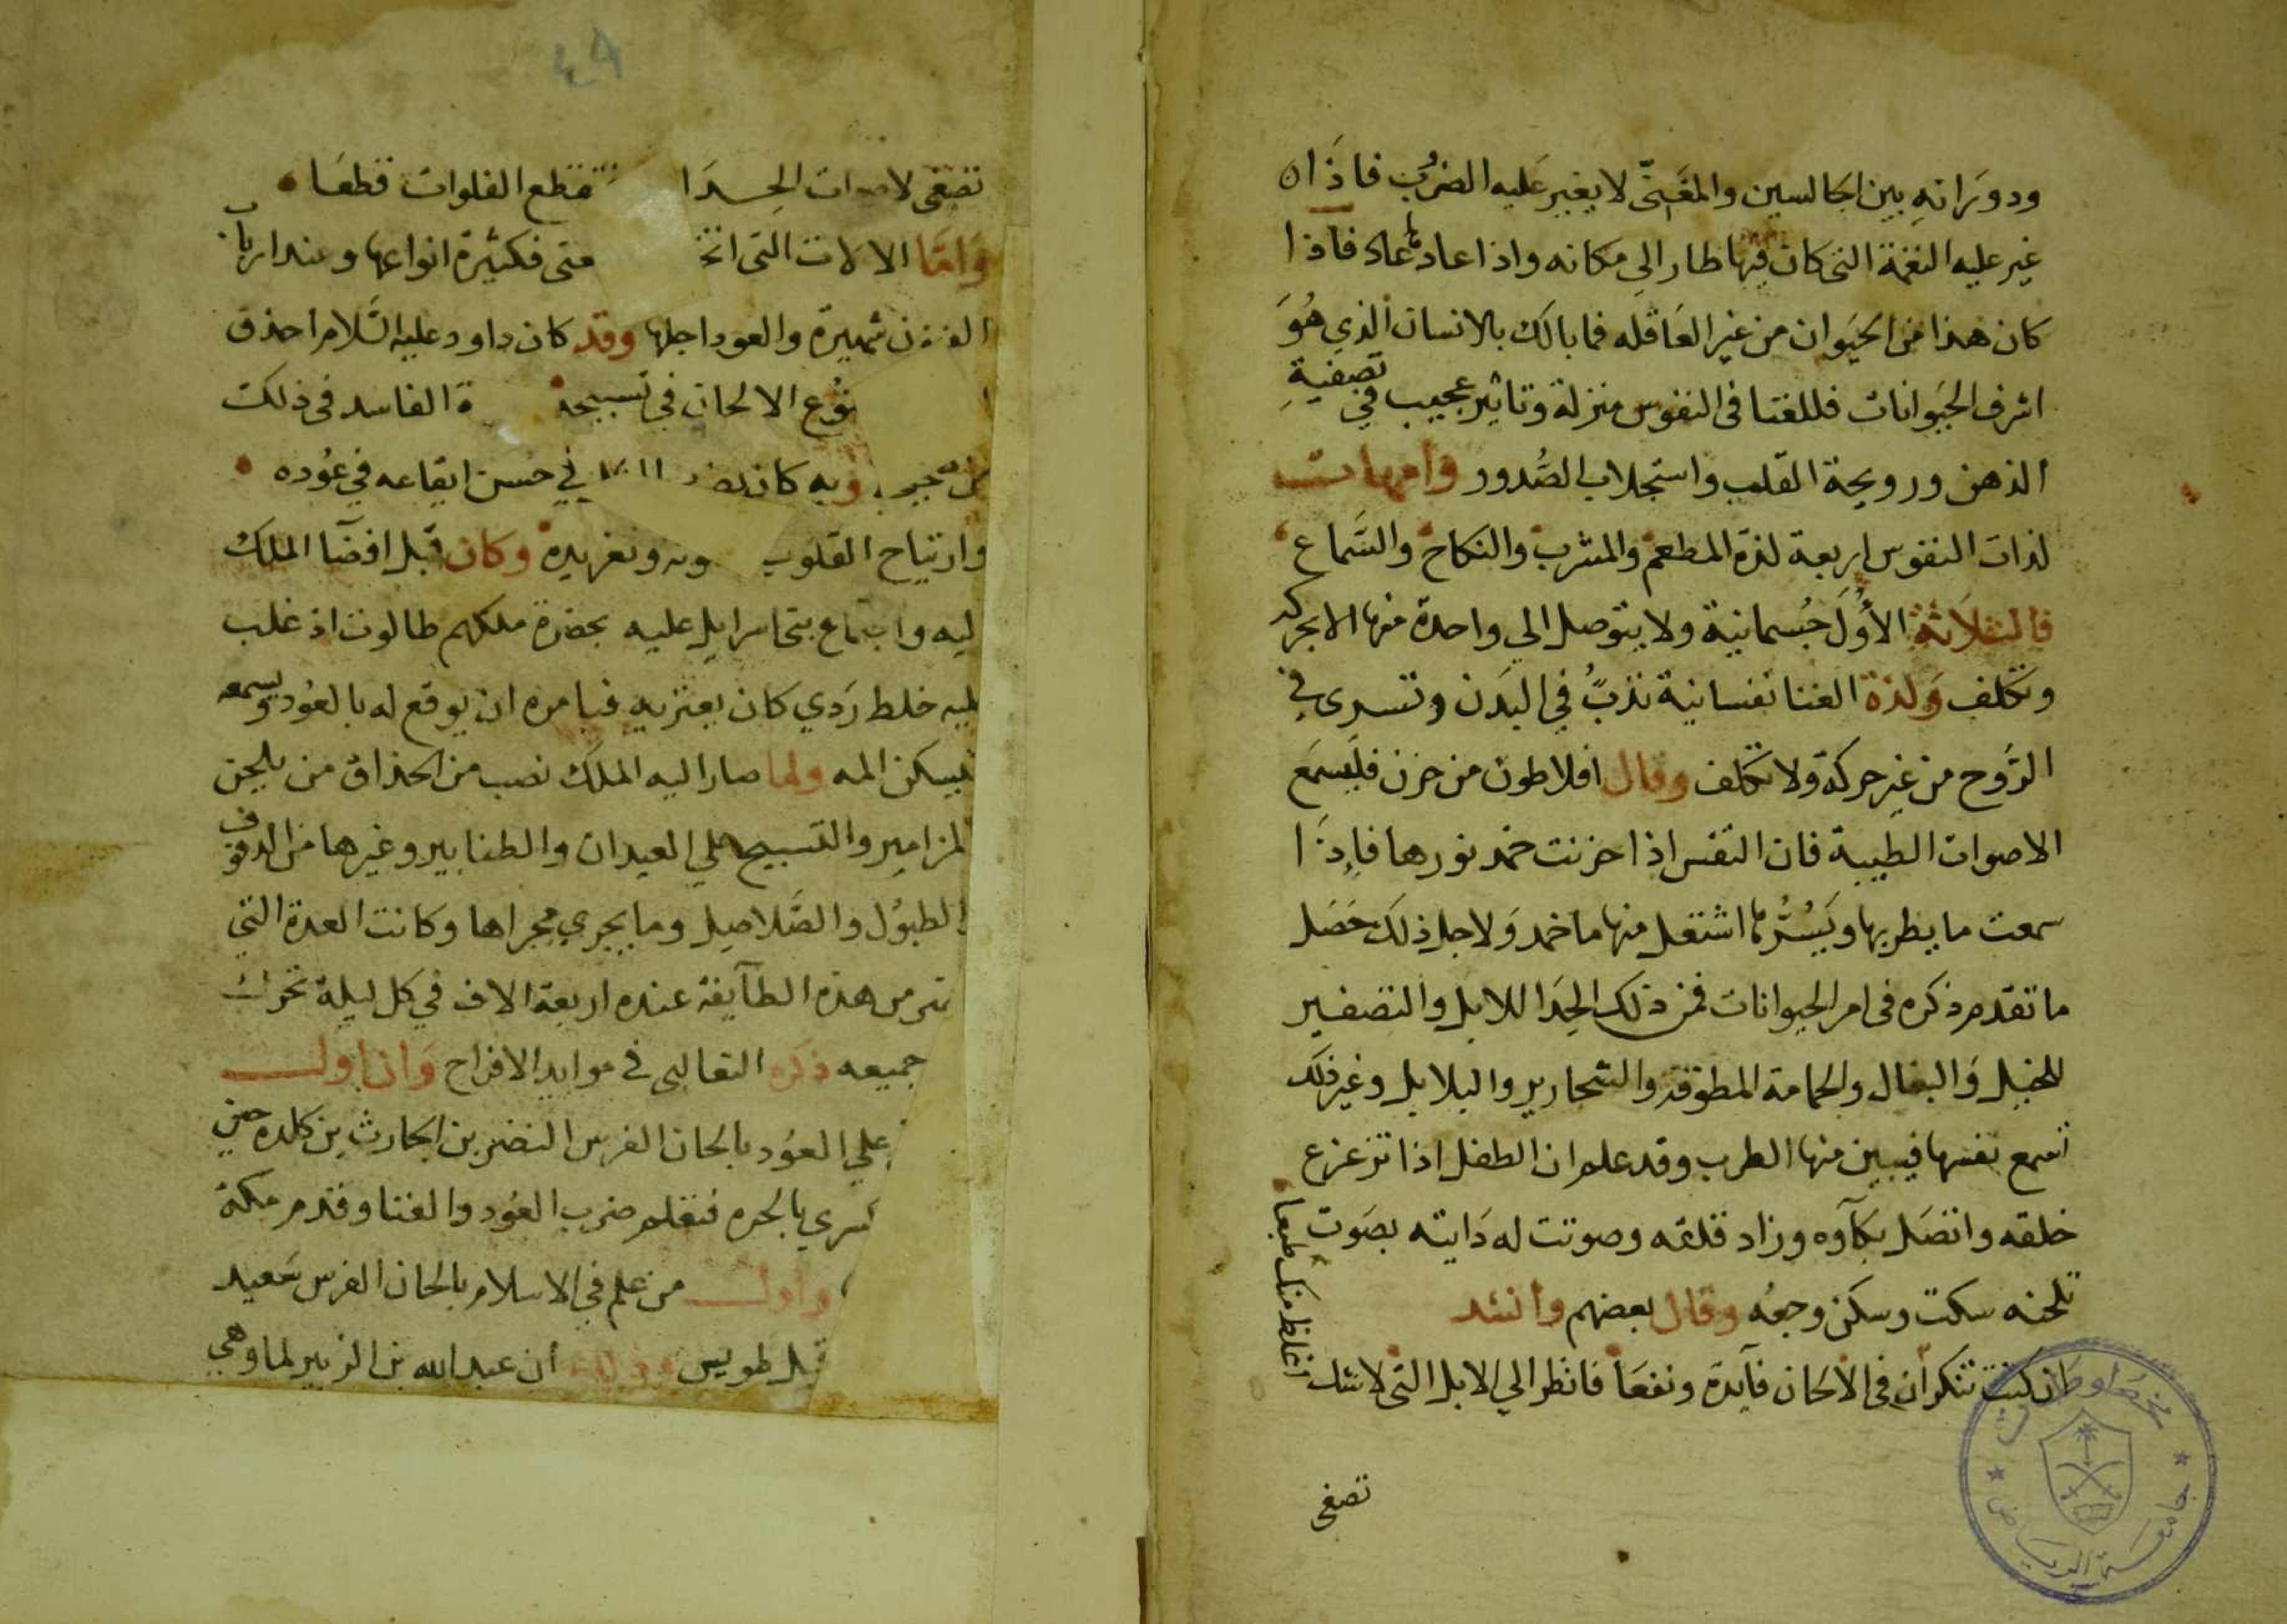 ودورانه بين الجالسين والمغني لا يغير عليه الضرب فاذا
غير عليه النغمة التي كان فيها طار الي مكانه واذا عاد لها عاد فاذا
كان هذا من الحيوان من غير العاقله فما بالك بالانسان الذي هو
اشرف الحيوانات فللغنا في النفوس منزلة وتاثير عجيب في تصفية
الذهن ورويحة القلب واستجلاب الصدور وامهات
لذات النفوس اربعة لذة المطعم والمشرب والنكاح والسماع
فالثلاثة الأول جسمانية ولا يتوصل الي واحدة منها الا بحركه
وتكلف ولذة الغنا نفسانية تدب في البدن وتسري في
الروح من غير حركة ولا تكلف وقال افلاطون من حزن فليسمع
الاصوات الطيبة فان النفس اذا حزنت خمد نورها فاذا
سمعت ما يطربها ويسرها اشتعل منها ما خمد ولاجل ذلك حصل
ما تقدم ذكره في امر الحيوانات فمن ذلك الحدا للابل والتصفير
للخيل والبغال والحمامة المطوقة والشحارير والبلابل وغير ذلك
تسمع نفسها فيبين منها الطرب وقد علم ان الطفل اذا تزعزع
خلقه واتصل بكآوه وزاد قلقه وصوتت له دايته بصوت
تلحنه سكت وسكن وجعه وقال بعضهم وانشد
ان كنت تنكر ان في الالحان فآيدة ونفعا فانظر الي الابل التي لاشك
اغلظ منك طبعا
تصغي
مخطوطات
جامعة الرياض
٤٩
تصغي لاصوات الحدا تقطع الفلوات قطعا
واما الالات التي فكثيرة انواعها وعند ارباب
شهيرة والعود اجلها وقد كان داود عليه السلام احذق
الالحان في تسبيحه الفاسد في ذلك
وبه كان في حسن ايقاعه في عوده
وارتياح القلوب وتغريده وكان قبل افضآ الملك
ليه واجتماع بني اسرايل عليه بحضرة ملكهم طالوت اذ غلب
عليه خلط ردي كان يعتريه فيامره ان يوقع له بالعود ويسمعه
فيسكن المه ولما صار اليه الملك نصب من الحذاق من يلحن
المزامير والتسبيح علي العيدان والطنابير وغيرها من الدفوف
الطبول والصلاصيل وما يجري مجراها وكانت العدة التي
من هذه الطآيفة عنده اربعة الاف في كل ليلة
جميعه ذكره الثعالبي في موايد الافراح وان اول
علي العود بالحان الفرس النضر بن الحارث بن كلده حين
بالحره فتعلم ضرب العود والغنا وقدم مكة
واول من علم في الاسلام بالحان الفرس سعيد
قبل طويس ان عبد الله بن الزبير لما وهي